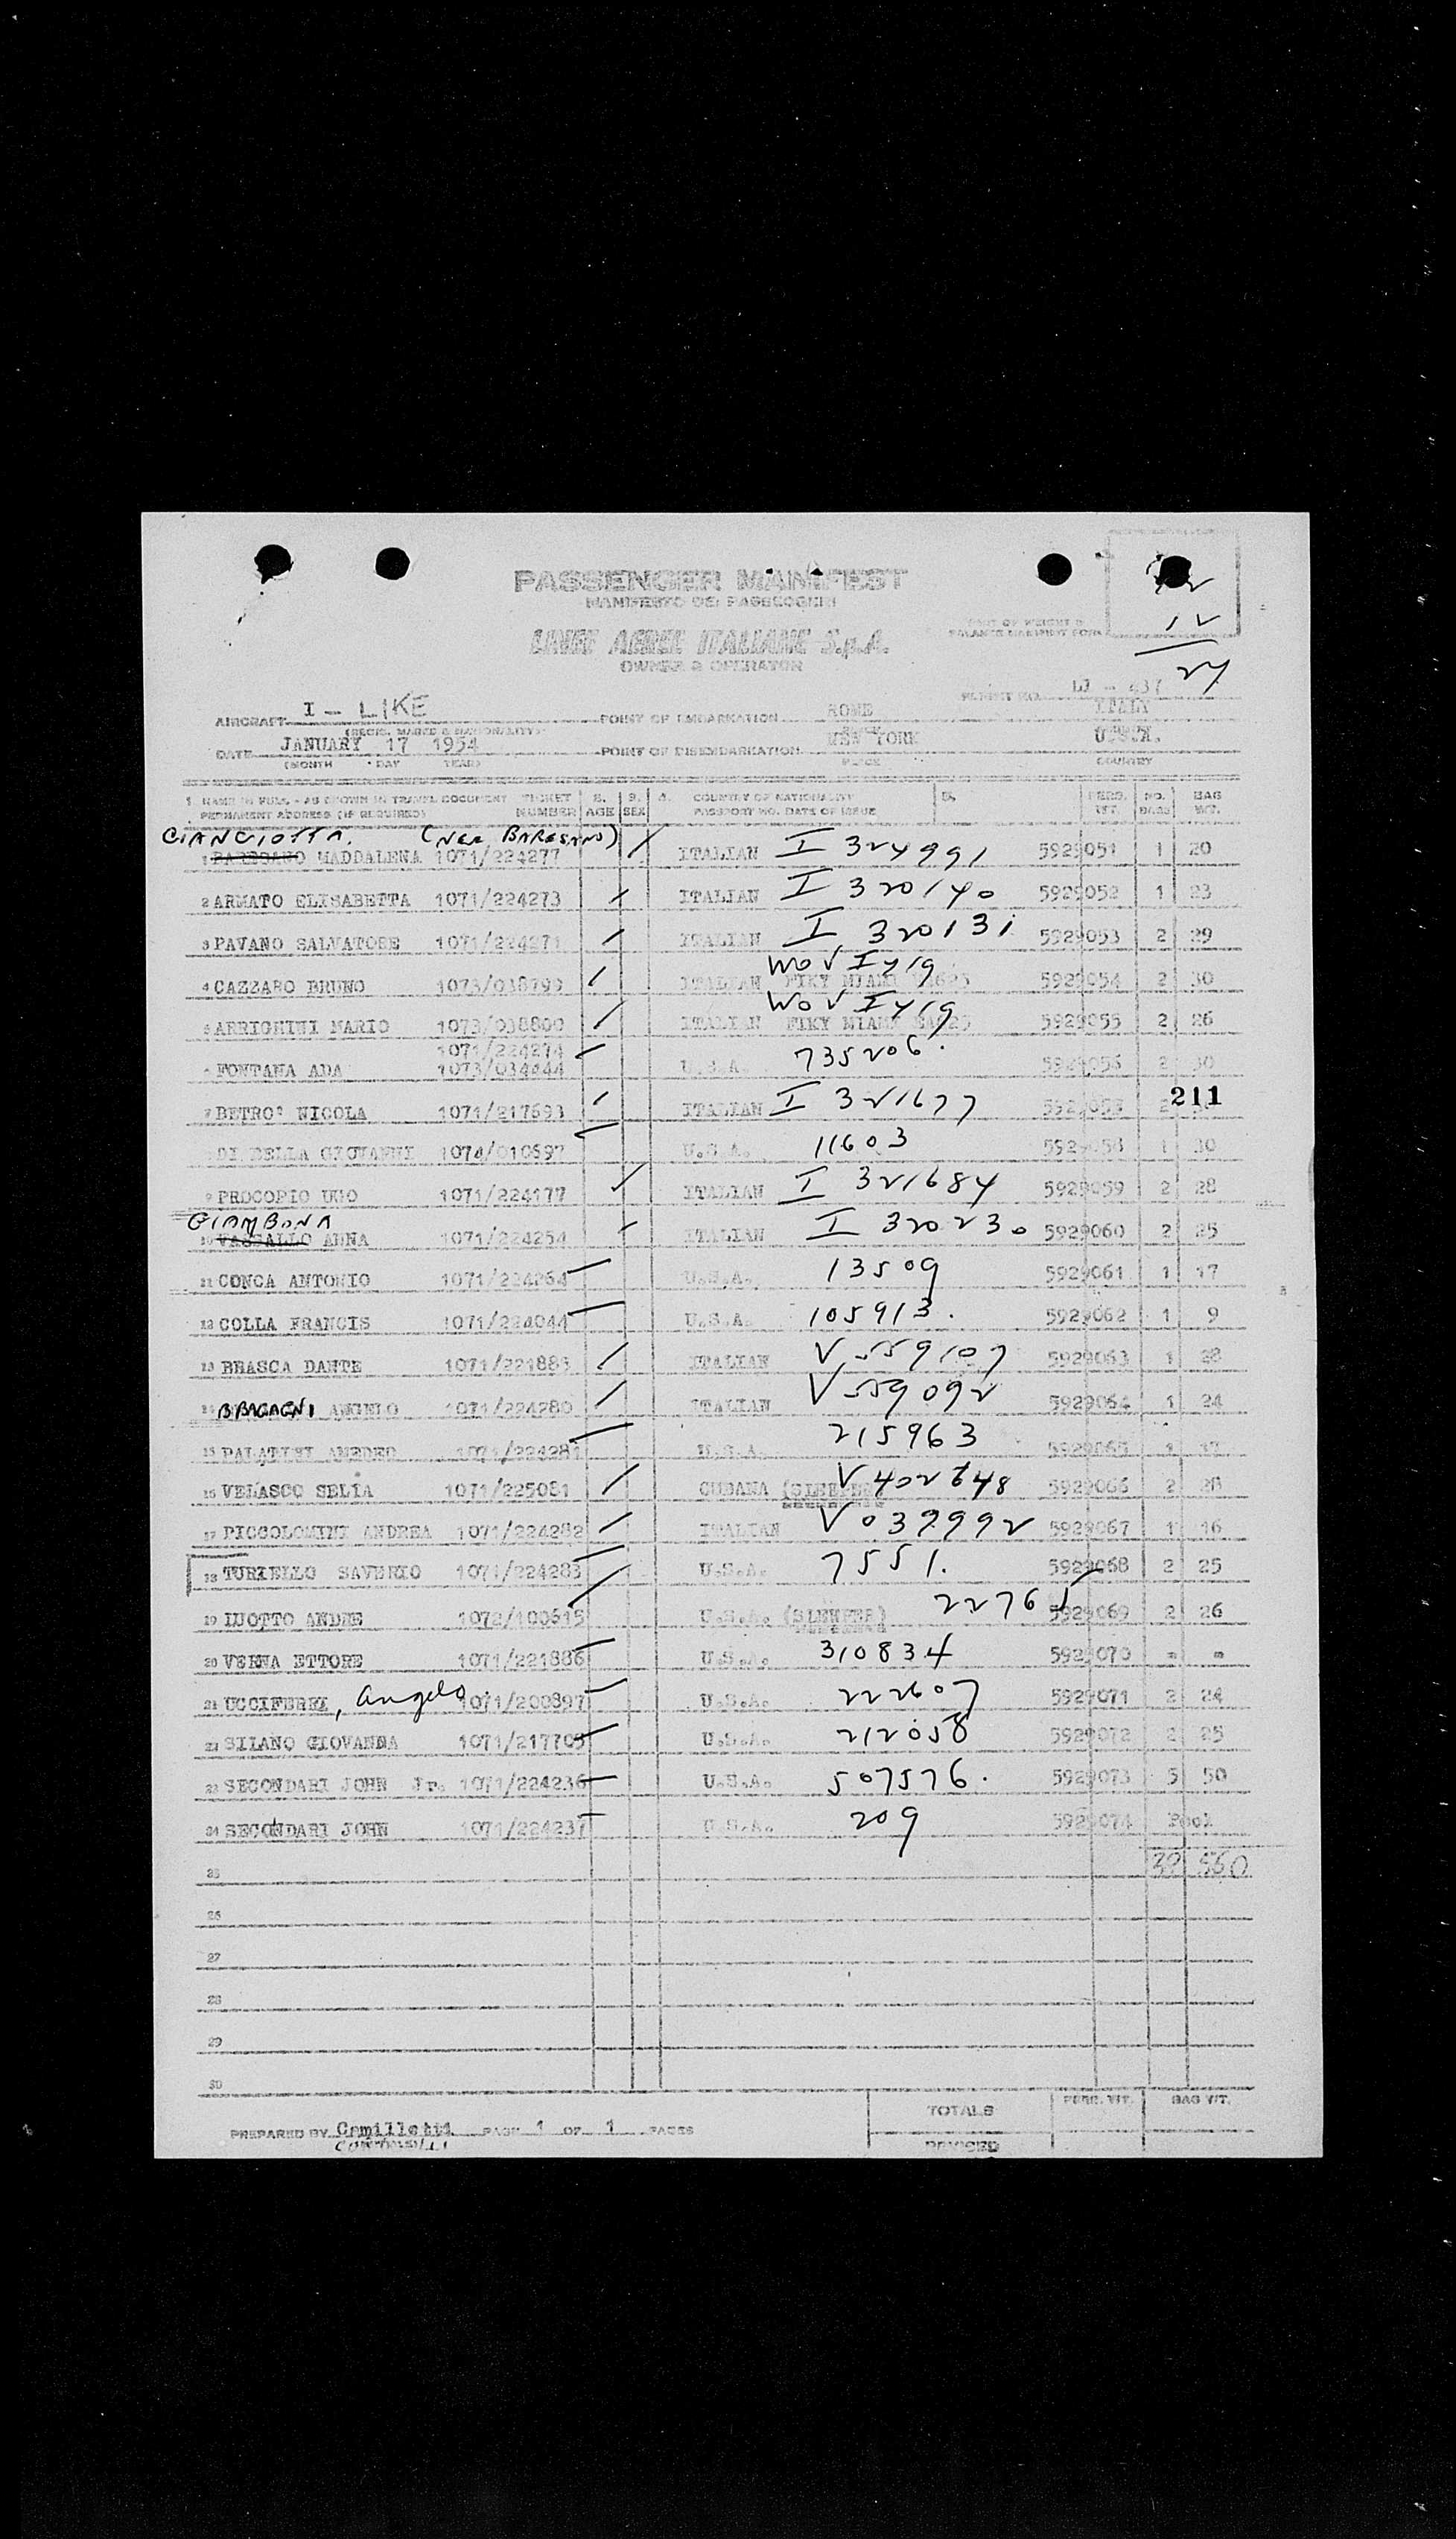 PASSENGER MANIFEST
MANIFESTO DEI PASSEGGERI
LINEE AEREE ITALIANE S.p.A.
OWNER & OPERATOR
PART OF WEIGHT &
BALANCE MANIFEST FORM
12
24
LI - 437
AIRCRAFT I - LIKE POINT OF EMBARKATION ROME ITALY
(REGIS. MARKS & NATIONALITY)
DATE JANUARY 17 1954 POINT OF DISEMBARKATION NEW YORK U.S.A.
(MONTH DAY YEAR) PLACE COUNTRY
1. NAME IN FULL - AS SHOWN IN TRAVEL DOCUMENT TICKET 2. 3. 4. COUNTRY OF NATIONALITY 5. PERS. NO. BAG
PERMANENT ADDRESS (IF REQUIRED) NUMBER AGE SEX PASSPORT NO. DATE OF ISSUE WT. BAGS WT.
CIANCIOTTA. (NEE BARESANO)
1 BARESANO MADDALENA 1071/224277 ITALIAN I 324991 5929051 1 20
2 ARMATO ELISABETTA 1071/224273 ITALIAN I 320140 5929052 1 23
3 PAVANO SALVATORE 1071/224271 ITALIAN I 320131 5929053 2 29
WOV I419
4 CAZZARO BRUNO 1073/038799 ITALIAN FIKY MIAMI 5929054 2 30
WOV I419
5 ARRIGHINI MARIO 1073/038800 ITALIAN FIKY MIAMI 5929055 2 26
1071/224274
FONTANA ADA 1073/034444 U.S.A. 735206. 5929056 2 30
7 BETRO' NICOLA 1071/217693 ITALIAN I 321677 211
DI BELLA GIOVANNI 1074/010697 U.S.A. 11603 5929058 1 30
9 PROCOPIO UGO 1071/224177 ITALIAN I 321684 5929059 2 28
GIAMBONA
10 VASSALLO ANNA 1071/224254 ITALIAN I 320230 5929060 2 25
11 CONCA ANTONIO 1071/224264 U.S.A. 13509 5929061 1 17
12 COLLA FRANCIS 1071/224044 U.S.A. 105913. 5929062 1 9
13 BRASCA DANTE 1071/221885 ITALIAN V 559107 5929063 1 28
14 BRAGAGNI ANGELO 1071/224280 ITALIAN V 559092 5929064 1 24
15 PALATINI AMEDEO 1071/224281 U.S.A. 215963 5929065 1 17
16 VELASCO SELIA 1071/225081 CUBANA (SLEEPER) V 402648 5929066 2 28
17 PICCOLOMINI ANDREA 1071/224282 ITALIAN V 039992 5929067 1 16
18 TURIELLO SAVERIO 1071/224283 U.S.A. 7551. 5929068 2 25
19 LUOTTO ANDRE 1072/100615 U.S.A. (SLEEPER) 22765 5929069 2 26
20 VERNA ETTORE 1071/221886 U.S.A. 310834 5929070 = =
21 UCCIFERRI, Angelo 1071/200897 U.S.A. 222607 5929071 2 24
22 SILANO GIOVANNA 1071/217705 U.S.A. 212058 5929072 2 25
23 SECONDARI JOHN Jr. 1071/224236 U.S.A. 507576. 5929073 5 50
24 SECONDARI JOHN 1071/224237 U.S.A. 209 5929074 Pool
25 39 560
26
27
28
29
30
TOTALS PERS. WT. BAG WT.
PREPARED BY Camilletti PAGE 1 OF 1 PAGES
REVISED